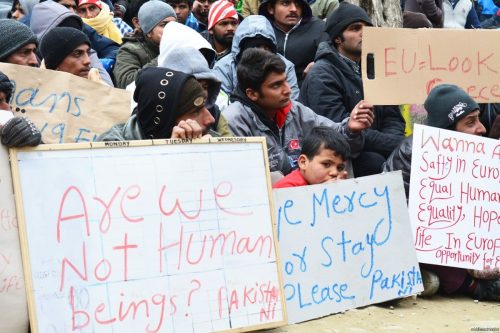 EU=Look
Greece
MONDAY TUESDAY WEDNESDAY
Are we
Not Human
beings?
PAKISTAN
N!
Mercy
or Stay
Please PAKISTAN
N!
Wanna
Safty In Europ
Equal Human
Equality, Hope
life In Europe
opportunity for E